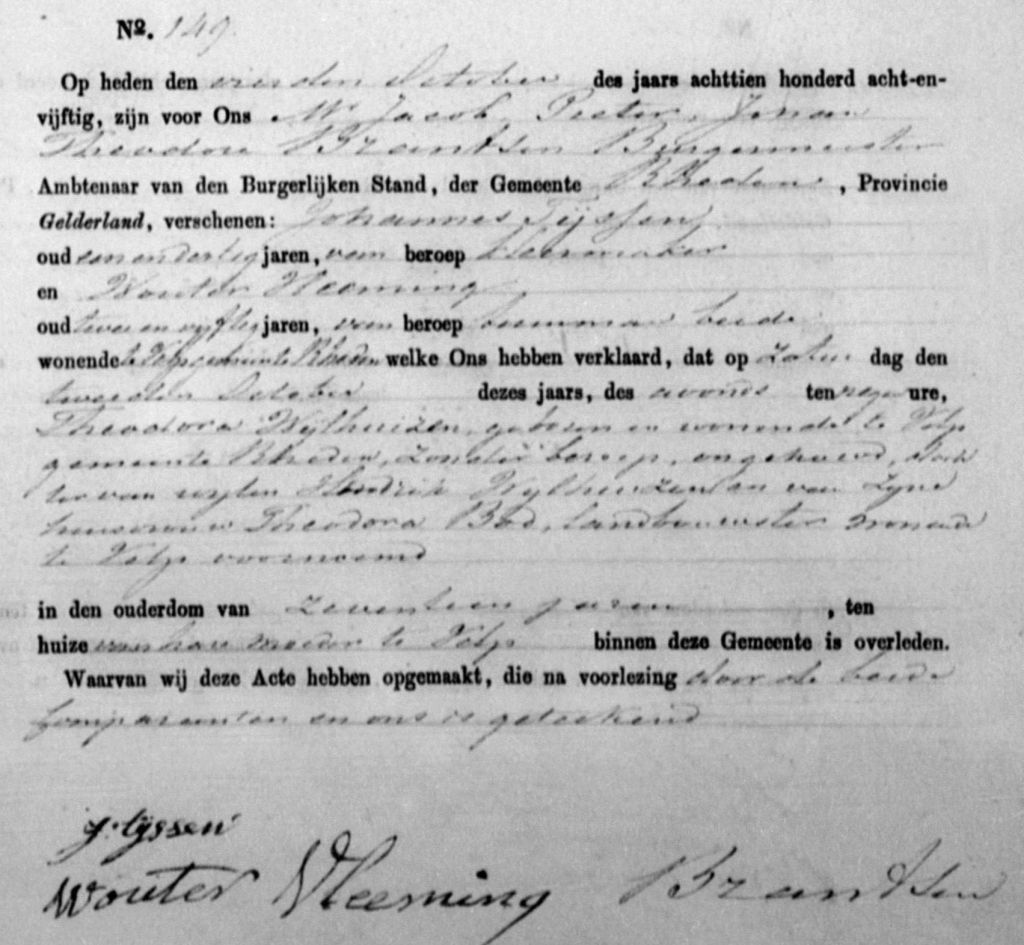 Nº. 149.
Op heden den vierden October des jaars achttien honderd acht-en-
vijftig, zijn voor Ons Mr Jacob Pieter Johan
Theodore Brantsen Burgemeester
Ambtenaar van den Burgerlijken Stand, der Gemeente Rheden, Provincie
Gelderland, verschenen: Johannes Tijssen
oud een en dertig jaren, van beroep kleermaker
en Wouter Heeming
oud twee en vijftig jaren, van beroep beide
wonende te Velp gemeente Rheden welke Ons hebben verklaard, dat op Zatur dag den
tweeden October dezes jaars, des avonds ten negen ure,
Theodora Wijlhuizen, geboren en wonende te Velp
gemeente Rheden, zonder beroep, ongehuwd, doch
ter van wijlen Hendrik Wijlhuizen en van zyne
huisvrouw Theodora Bod, landbouwster wonende
te Velp voornoemd
in den ouderdom van zeventien jaren, ten
huize van hare moeder te Velp binnen deze Gemeente is overleden.
Waarvan wij deze Acte hebben opgemaakt, die na voorlezing door de beide
comparanten en ons is geteekend
J. tijssen
Wouter Heeming Brantsen